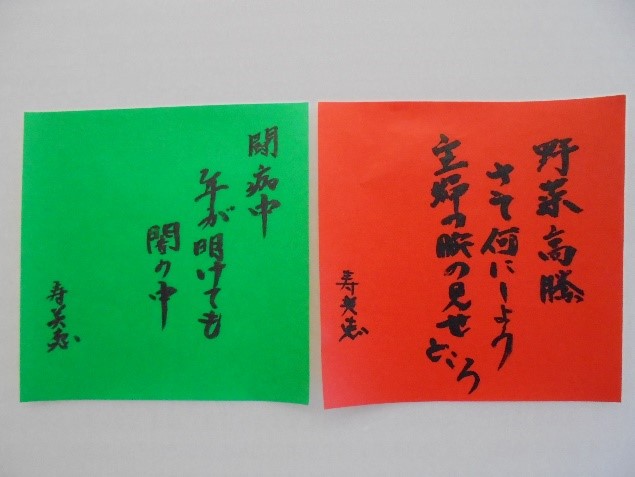 野菜高騰
さて何にしよう
主婦の腕の見せどころ
寿美恵
闘病中
年が明けても
闇の中
寿美恵